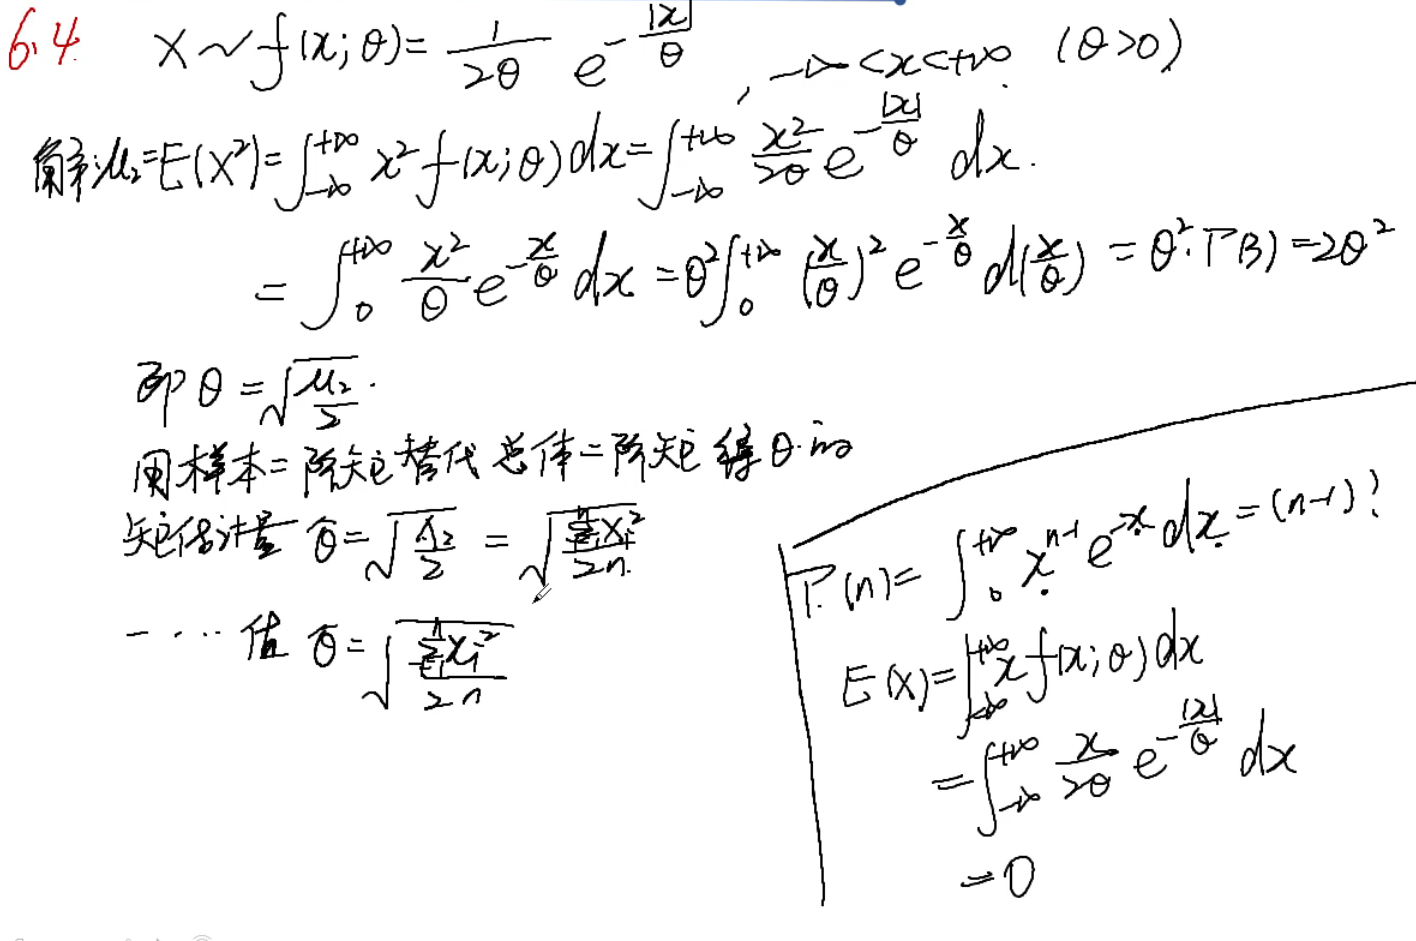 6.4 X ~ f(x; θ) = 1/(2θ) e^(-|x|/θ) , -∞ < x < +∞ (θ > 0)
解: μ₂ = E(X²) = ∫_{-∞}^{+∞} x² f(x; θ) dx = ∫_{-∞}^{+∞} x²/(2θ) e^(-|x|/θ) dx.
= ∫_0^{+∞} x²/θ e^(-x/θ) dx = θ² ∫_0^{+∞} (x/θ)² e^(-x/θ) d(x/θ) = θ²·Γ(3) = 2θ²
即 θ = √(μ₂/2).
用样本二阶矩替代总体二阶矩得θ的
矩估计量 θ̂ = √(A₂/2) = √(∑_{i=1}^n X_i²/(2n))
一 .... 值 θ̂ = √(∑_{i=1}^n x_i²/(2n))
Γ(n) = ∫_0^{+∞} x^(n-1) e^(-x) dx = (n-1)!
E(X) = ∫_{-∞}^{+∞} x f(x; θ) dx
= ∫_{-∞}^{+∞} x/(2θ) e^(-|x|/θ) dx
= 0